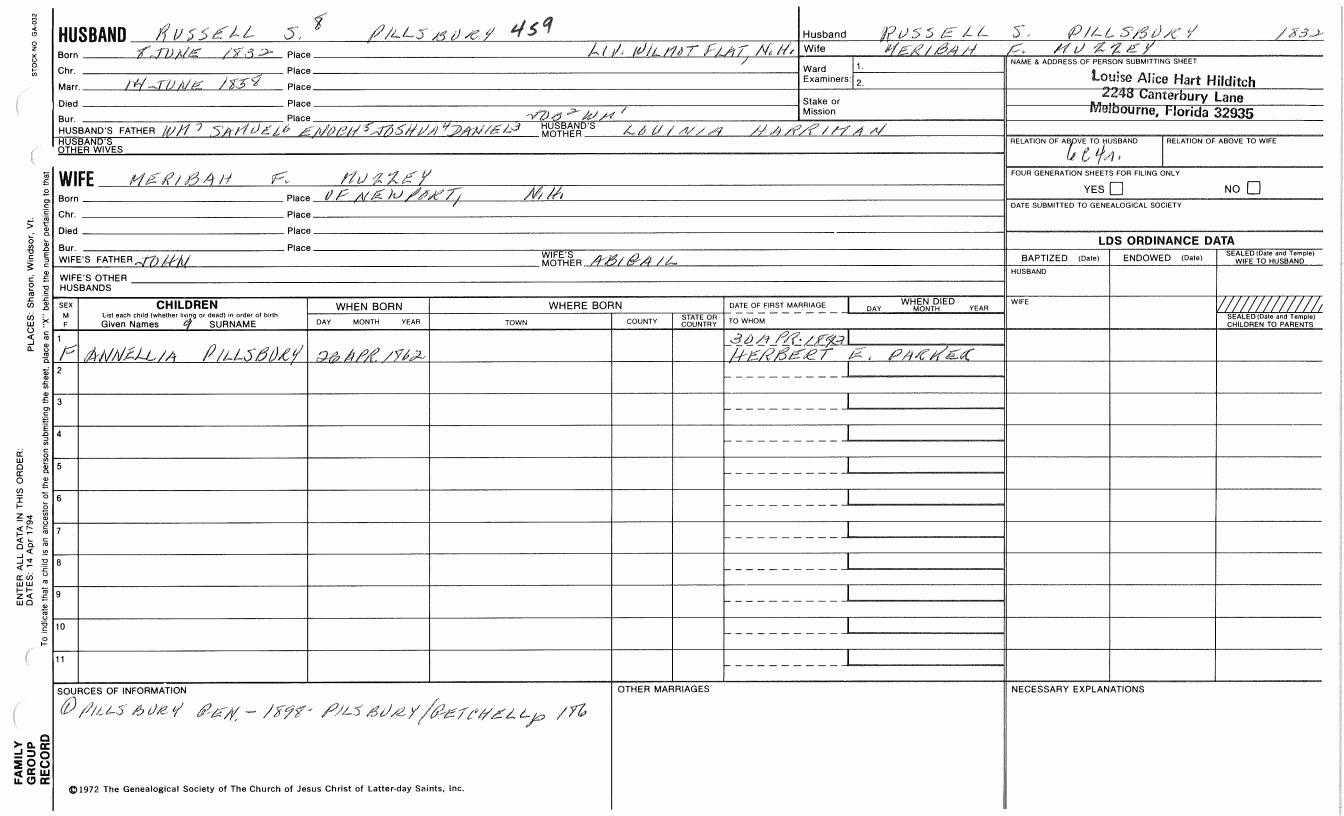 STOCK NO. GA-032
HUSBAND RUSSELL S. 8 PILLSBURY 459
Born 8 JUNE 1832 Place LIV. WILMOT FLAT, N.H.
Chr. Place
Marr. 14 JUNE 1858 Place
Died Place
Bur. Place
JOB 2 WM 1
HUSBAND'S FATHER WM 7 SAMUEL 6 ENOCH 5 JOSHUA 4 DANIEL 3 HUSBAND'S MOTHER LOUINIA HARRIMAN
HUSBAND'S OTHER WIVES
Husband RUSSELL S. PILLSBURY 1832
Wife MERIBAH F. MUZZEY
Ward Examiners: 1.
2.
Stake or Mission
NAME & ADDRESS OF PERSON SUBMITTING SHEET
Louise Alice Hart Hilditch
2248 Canterbury Lane
Melbourne, Florida 32935
RELATION OF ABOVE TO HUSBAND RELATION OF ABOVE TO WIFE
6C4r.
FOUR GENERATION SHEETS FOR FILING ONLY
YES NO
DATE SUBMITTED TO GENEALOGICAL SOCIETY
WIFE MERIBAH F. MUZZEY
Born Place OF NEWPORT, N.H.
Chr. Place
Died Place
Bur. Place
WIFE'S FATHER JOHN WIFE'S MOTHER ABIGAIL
WIFE'S OTHER HUSBANDS
LDS ORDINANCE DATA
BAPTIZED (Date) ENDOWED (Date) SEALED (Date and Temple) WIFE TO HUSBAND
HUSBAND
WIFE
SEALED (Date and Temple) CHILDREN TO PARENTS
SEX M F CHILDREN WHEN BORN WHERE BORN DATE OF FIRST MARRIAGE WHEN DIED
List each child (whether living or dead) in order of birth
Given Names 9 SURNAME DAY MONTH YEAR TOWN COUNTY STATE OR COUNTRY TO WHOM DAY MONTH YEAR
1 30 APR. 1892
F ANNELLIA PILLSBURY 26 APR 1862 HERBERT E. PARKER
2
3
4
5
6
7
8
9
10
11
SOURCES OF INFORMATION OTHER MARRIAGES NECESSARY EXPLANATIONS
① PILLSBURY GEN. - 1898 - PILSBURY/GETCHELL p 176
©1972 The Genealogical Society of The Church of Jesus Christ of Latter-day Saints, Inc.
FAMILY GROUP RECORD
ENTER ALL DATA IN THIS ORDER:
DATES: 14 Apr 1794 PLACES: Sharon, Windsor, Vt.
To indicate that a child is an ancestor of the person submitting the sheet, place an "X" behind the number pertaining to that